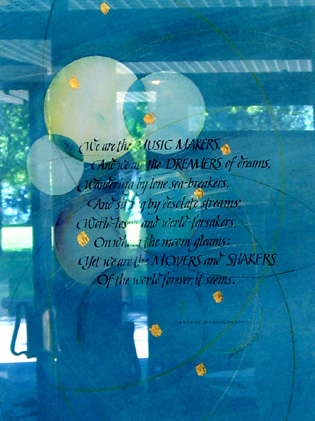 We are the MUSIC MAKERS,
And we are the DREAMERS of dreams,
Wandering by lone sea-breakers,
And sitting by desolate streams;
World-losers and world-forsakers,
On whom the moon gleams:
Yet we are the MOVERS and SHAKERS
Of the world forever, it seems.